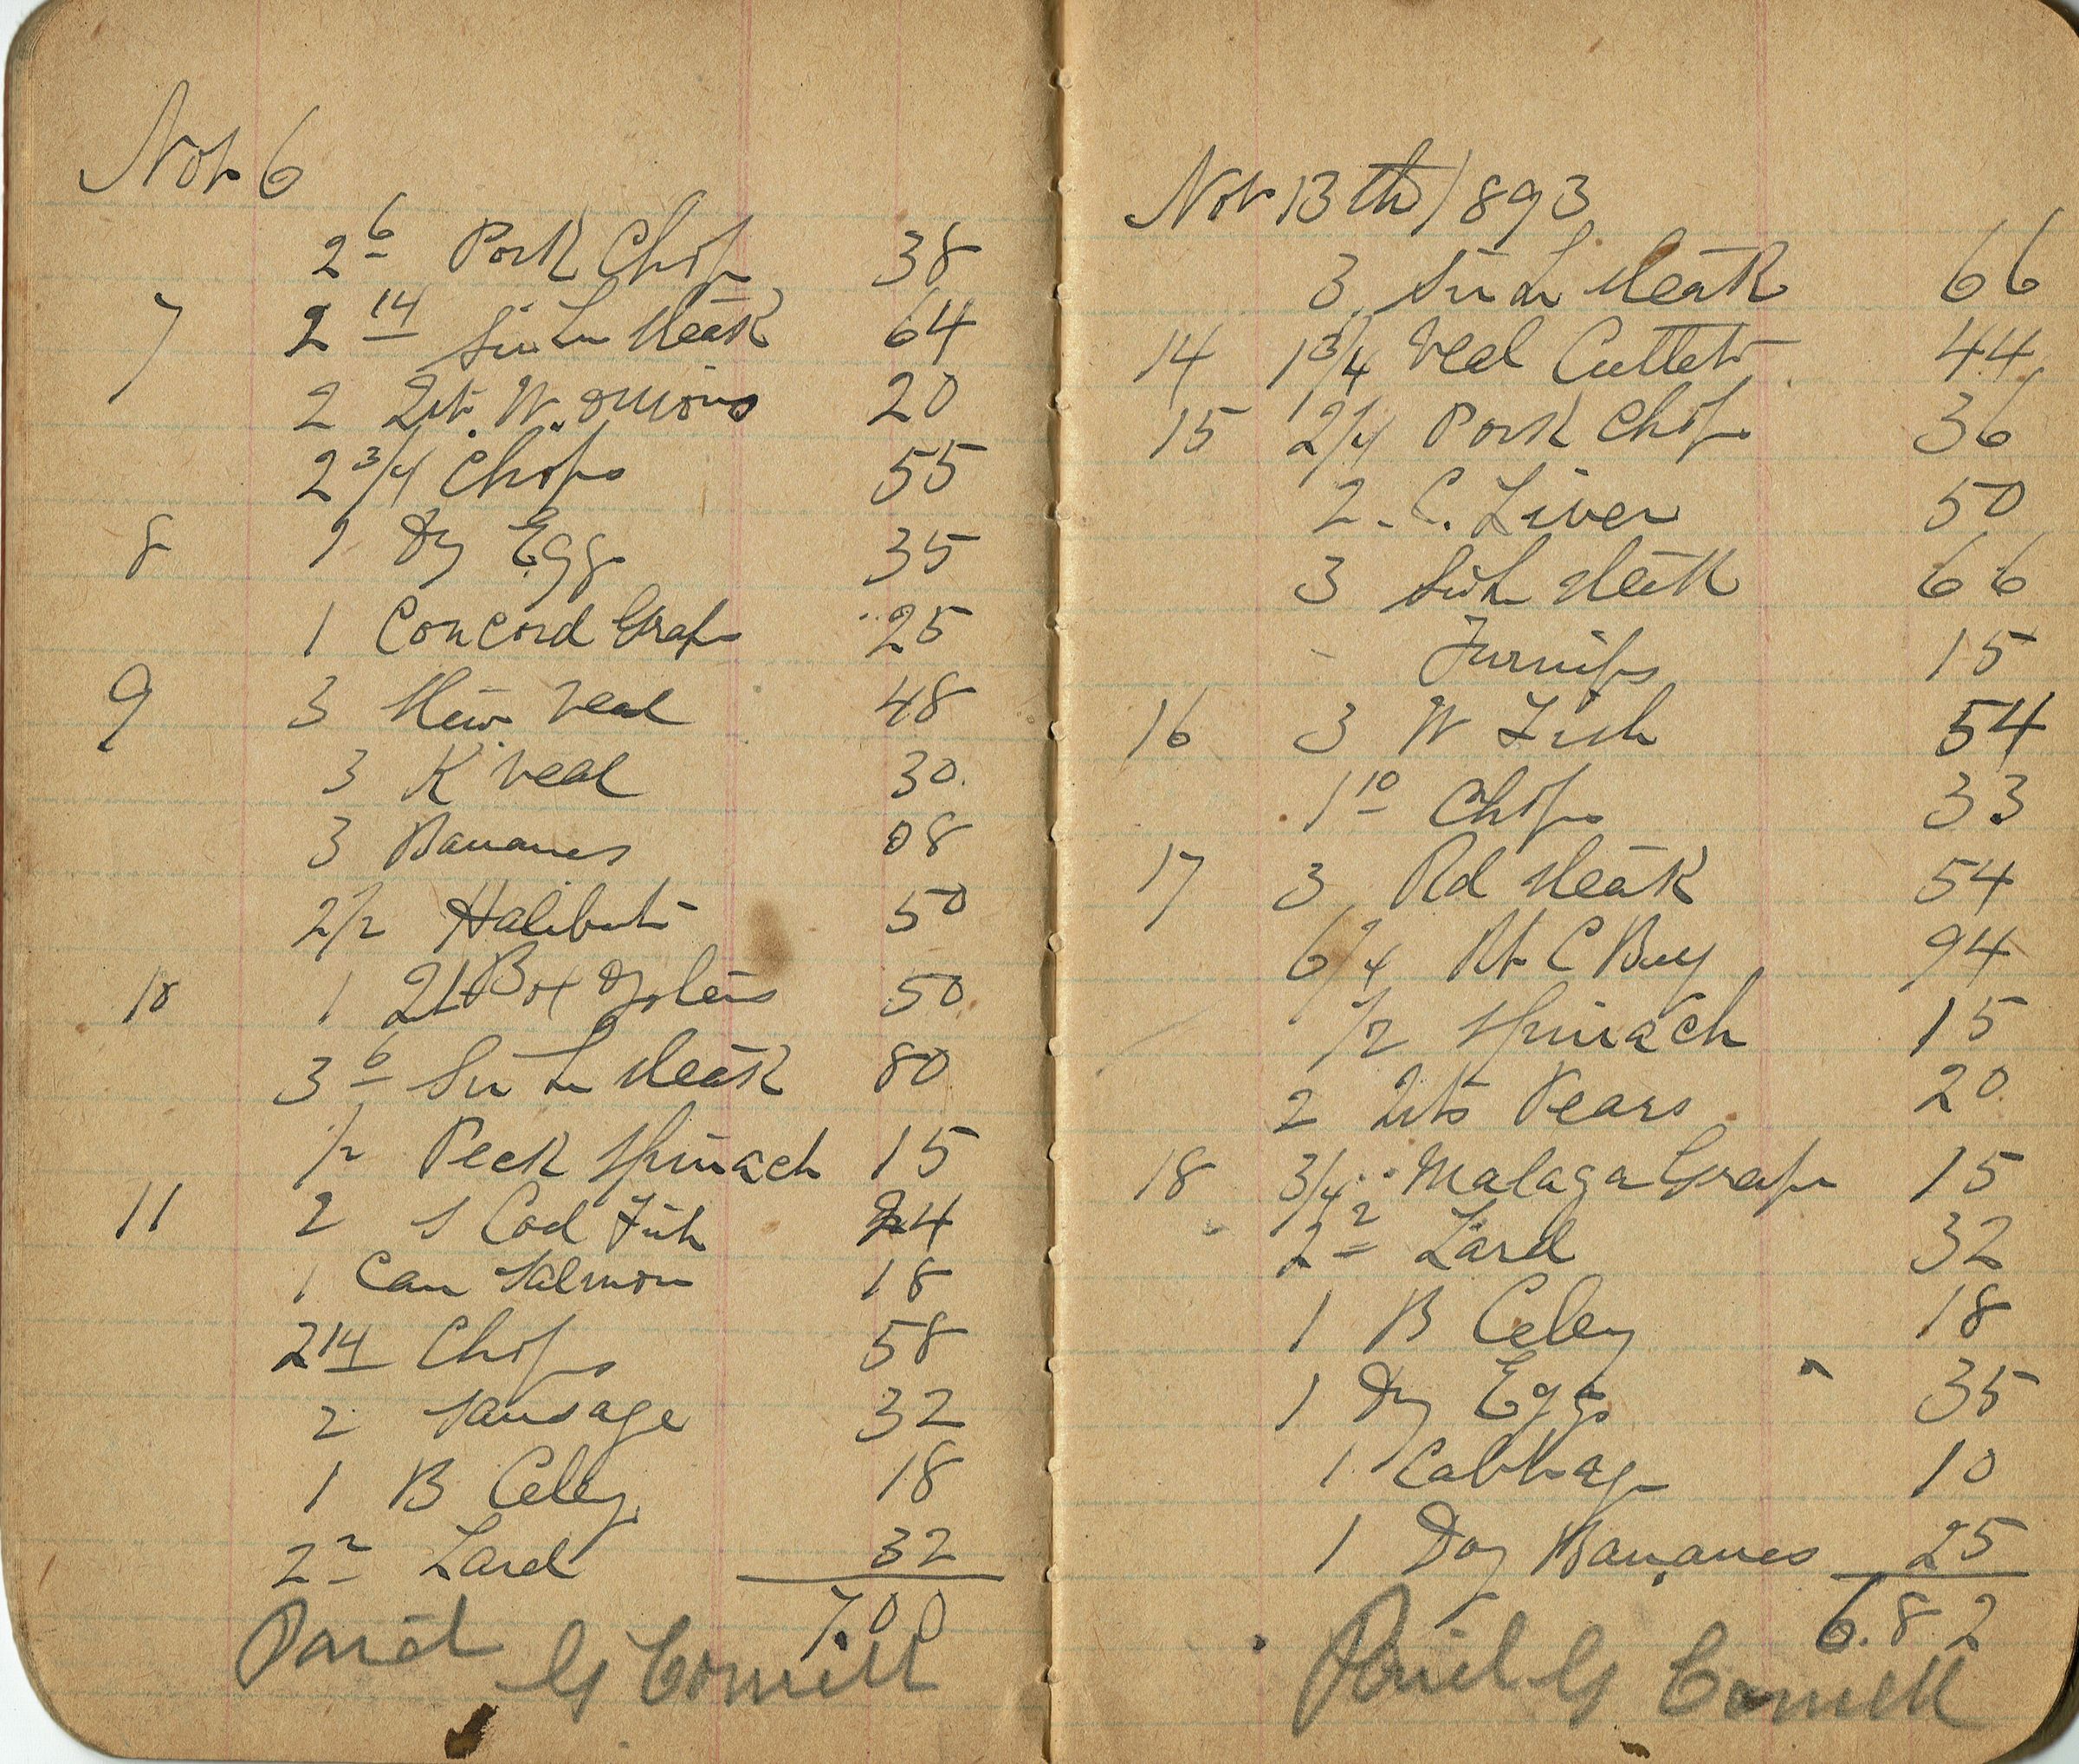 Nov 6
2 6 Pork Chops 38
7 2 14 Sir Ln Steak 64
2 Qts. W. Onions 20
2 3/4 Chops 55
8 1 Dz Eggs 35
1 Concord Graps 25
9 3 Stew Veal 48
3 K Veal 30
3 Bananes 08
2 1/2 Halibut 50
10 1 Qt Box Oysters 50
3 6 Sir Ln Steak 80
1/2 Peck Spinach 15
11 2 S Cod Fish 24
1 Can Salmon 18
2 14 Chops 58
2 Sausage 32
1 B Celey 18
2 2 Lard 32
7.00
Paid G Cornell
Nov 13th 1893
3 Sir Ln Steak 66
14 1 3/4 Veal Cutlets 44
15 2 1/4 Pork Chops 36
2 C. Liver 50
3 Sir Ln Steak 66
Turnips 15
16 3 W Fish 54
1 10 Chops 33
17 3 Rd Steak 54
6 1/4 Rt C 94
1/2 Spinach 15
2 Qts Pears 20
18 3/4 Malaga Graps 15
2 2 Lard 32
1 B Celey 18
1 Dz Eggs 35
1 Cabbage 10
1 Doz Bananes 25
6.82
Paid G Cornell